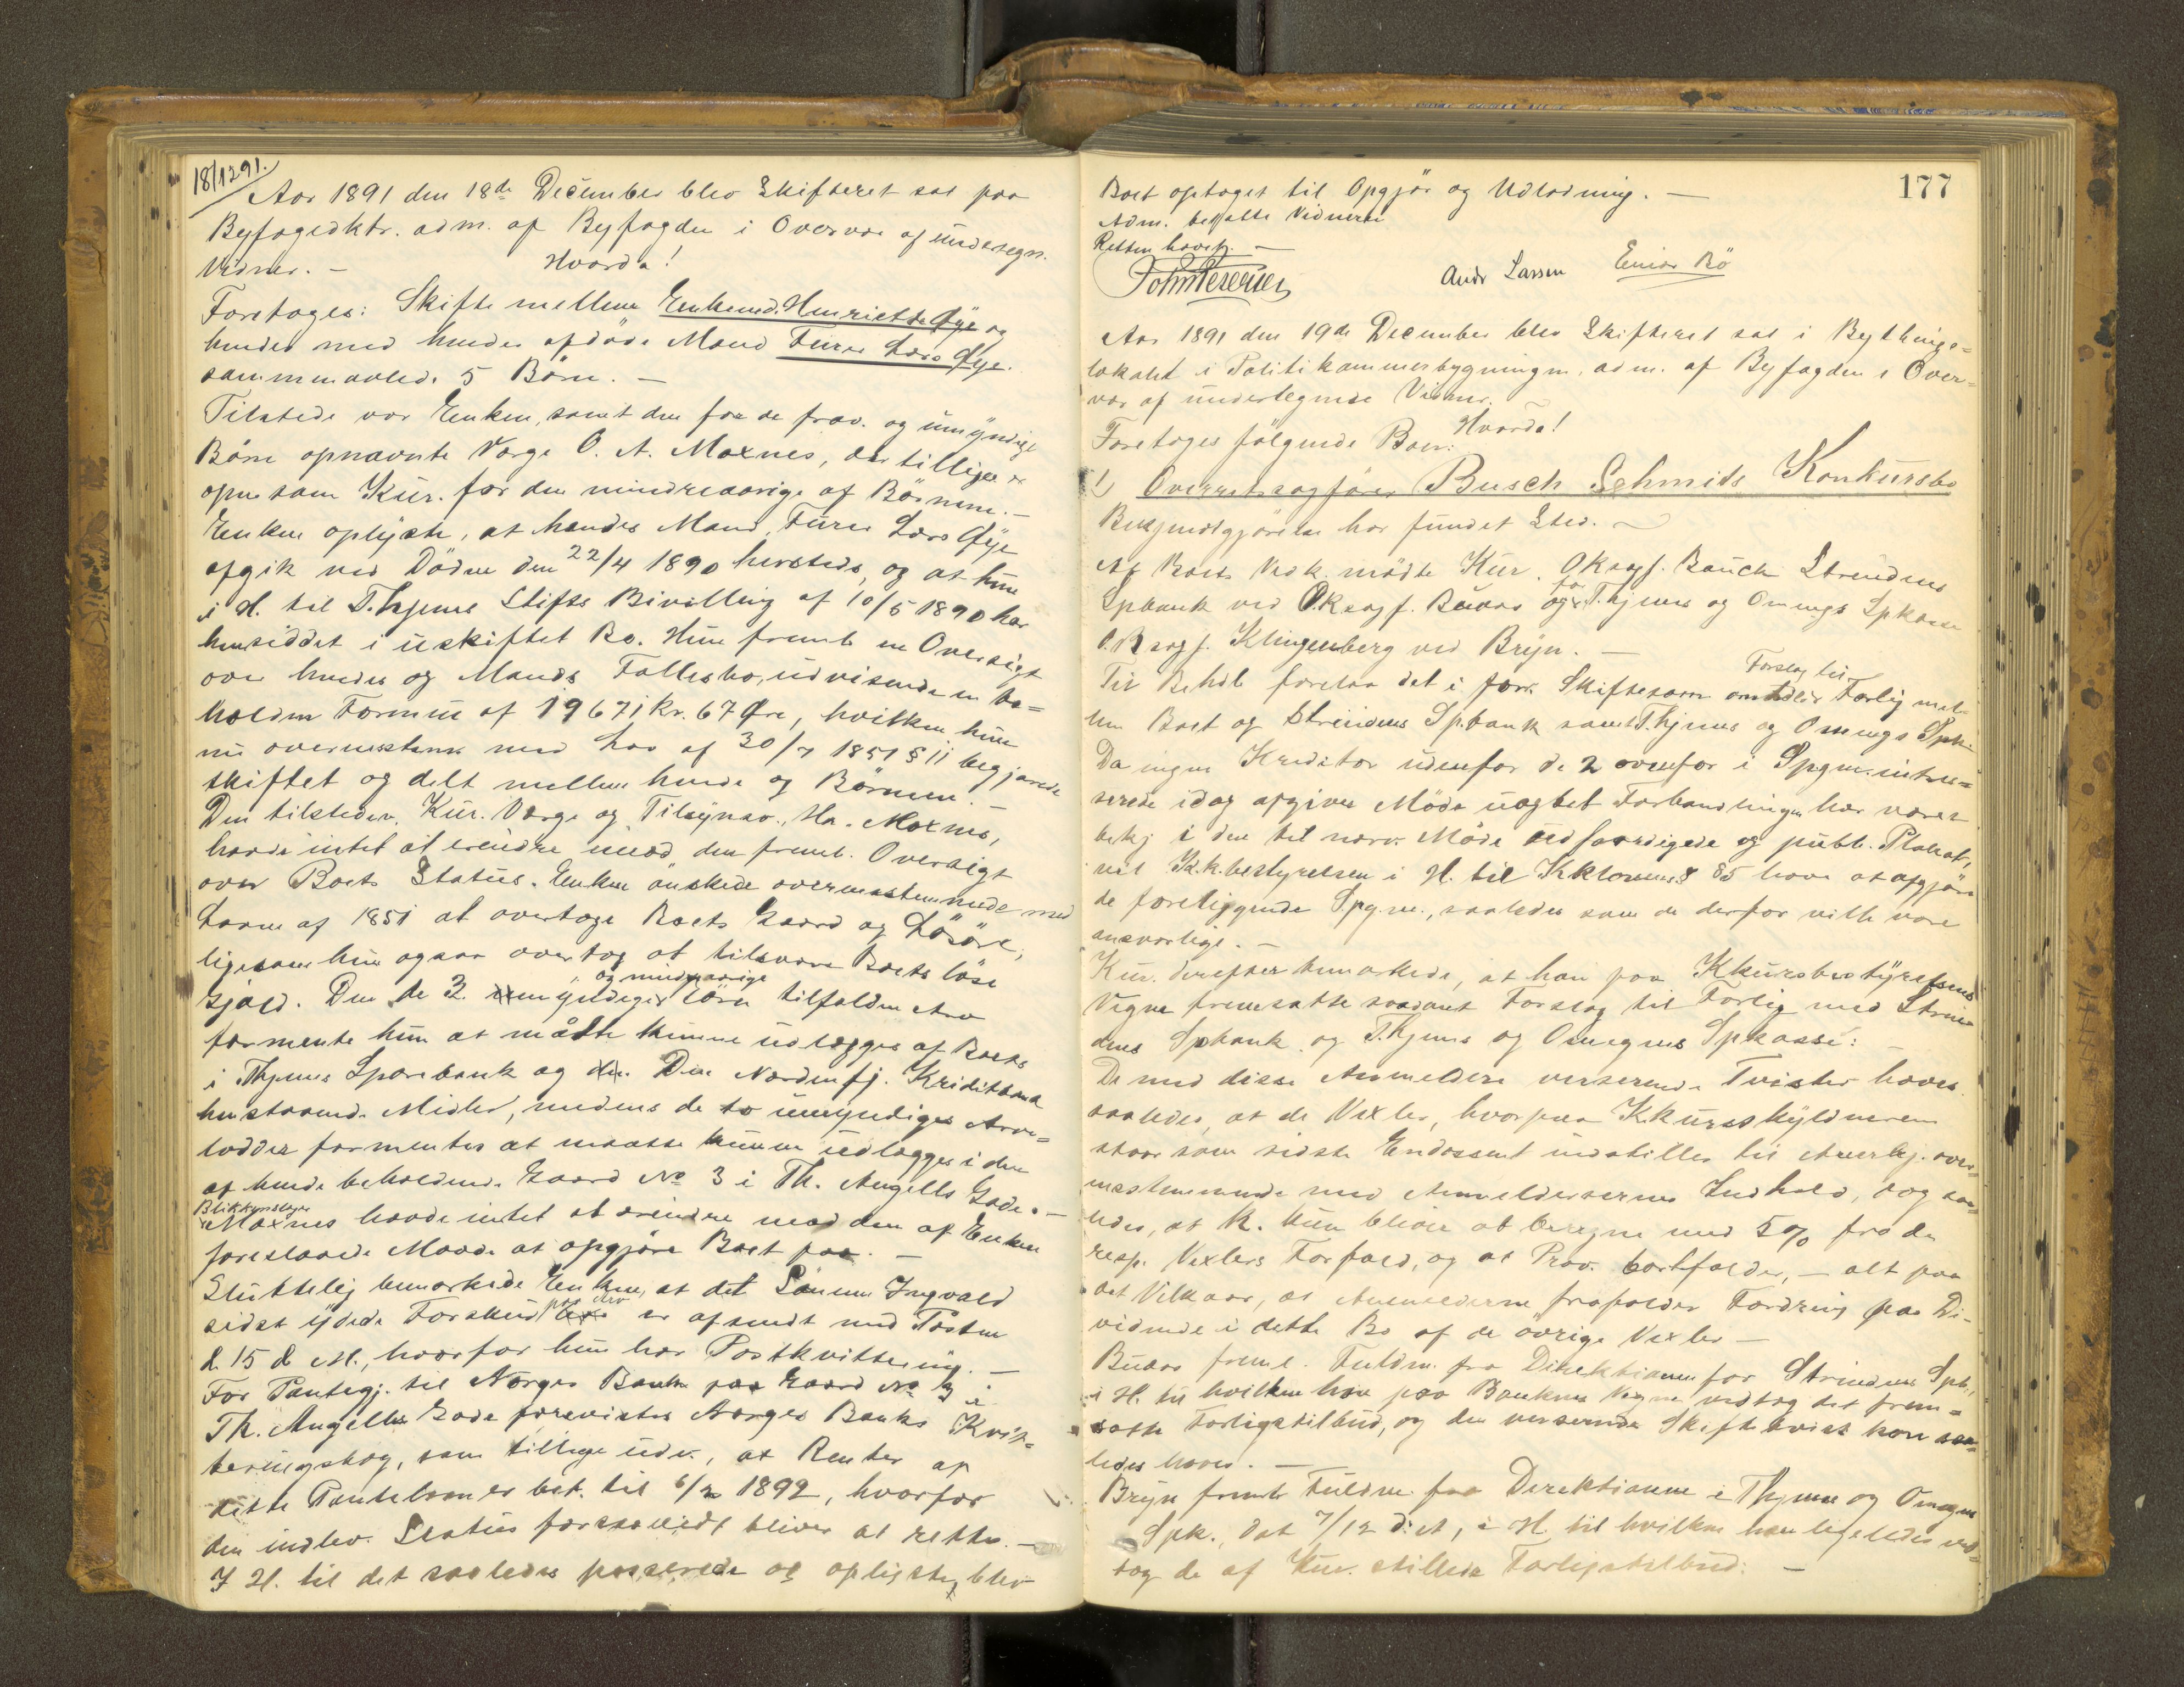 18/12 91.
Aar 1891 den 18de December blev Skifteret sat paa
Byfogedktr. adm. af Byfogden i Overvær af undertegn.
Vidner. –
Hvorda!
Foretoges: Skifte mellem Enkemd. Henriette Øye og
hendes med hendes afdöde Mand Furer Lars Øye.
sammenavlede 5 Börn. –
Tilstede var Enken, samt den for de frav. og umyndige
Börn opnævnte Værge O. A. Moxnes, der tillige er
opn. som Kur. for den mindreaarige af Börnene. –
Enken oplyste, at hendes Mand, Furer Lars Øye
afgik ved Döden den 22/4 1890 hersteds, og at hun
i H. til T.hjems Stifts Bevilling af 10/5 1890 har
hensiddet i uskiftet Bo. Hun freml. en Oversigt
over hendes og Mands Fællesbo, udvisende en be=
holden Formue af 19671 Kr. 67 Øre, hvilken hun
nu overensstem. med Lov af 30/7 1851 § 11 begjærede
skiftet og delt mellem hende og Börnene. –
Den tilstedev. Kur. Værge og Tilsynsv., Hr. Moxnes,
havde intet at erindre mod den freml. Oversigt
over Boets Status. Enken önskede overensstemmende med
Loven af 1851 at overtage Boets Gaard og Lösöre,
ligesom hun ogsaa overtog at tilsvare Boets löse
Gjæld. Den de 3 umyndige og mindreaarige Börn tilfaldne Arv
formente hun at maatte kunne udlægges af Boets
i Thjems Sparebank og Den Nordenfj. Kreditbank
henstaaende Midler, medens de to umyndiges Arve=
lodder formentes at maatte kunne udlægges i den
af hende beholdende Gaard No 3 i Th. Angells Gade. –
Blikkenslager
Moxnes havde intet at erindre mod den af Enken
foreslaaede Maade at opgjöre Boet paa. –
Sluttelig bemærkede Enken, at det Sönnen Ingvald
sidst ydede Forskud paa Arv er afsendt med Posten
d. 15 d. M., hvorfor hun har Postkvittering. –
For Pantegj. til Norges Bank paa Gaard No 3 i
Th. Angells Gade forevistes Norges Banks Kvit=
teringsbog, som tillige udv., at Renter af
dette Pantelaan er bet. til 6/2 1892, hvorfor
den indlev. Status forsaavidt bliver at rette. –
I H. til det saaledes passerede og oplyste, blev
177
Boet optaget til Opgjör og Udlodning. –
Adm. betalte Vidnerne
Retten hævet. –
Andr Larsen Einar Bö
Aar 1891 den 19de December blev Skifteret sat i Bythings=
lokalet i Politikammerbygningen, adm. af Byfogden i Over=
vær af undertegnede Vidner.
Hvorda!
Foretoges fölgende Boer:
1) Overretssagförer Busch Schmidts Konkursbo
Bekjendtgjörelse har fundet Sted.
Af Boets Vedk. mödte Kur. Oksagf. Bauck Strindens
Spbank ved Oksagf. Buaas og for T.hjems og Omegns Spkasse
O.R.sagf. Klingenberg ved Bryn. –
Til Behdl. forelaa det i forr. Skiftesam. omhdlde Forslag til Forlig mel=
lem Boet og Strindens Spbank samt T.hjems og Omegns Spk.
Da ingen Kreditor udenfor de 2 ovenfor i Spgm. intres=
serede idag afgives Möde uagtet Forhandlingen har været
bekj. i den til nærv. Möde udfærdigede og publ. Plakat,
vil Kk.bestyrelsen i H. til Kklovens § 85 have at afgjöre
de foreliggende Spgm., saaledes som de derfor ville være
ansvarlige. –
Kur. derefter bemærkede, at han paa Kkursbestyrelsens
Vegne fremsatte saadant Forslag til Forlig med Strin=
dens Spbank og T.hjems og Omegns Spkasse: –
De med disse Anmeldere verserende Tvister hæves
saaledes, at de Vexler, hvorpaa K.kursskyldneren
staar som sidste Endossent indstilles til Anerkj. over=
ensstemmende med Anmeldelsernes Indhold, dog saa=
ledes, at R. kun bliver at beregne med 5% fra de
resp. Vexlers Forfald, og at Prov. bortfalder, – alt paa
det Vilkaar, at Anmelderne frafalder Fordring paa Di=
vidende i dette Bo af de övrige Vexler –
Buaas freml. Fuldm. fra Direktionen for Strindens Spb.,
i H. til hvilken han paa Bankens Vegne vedtog det frem=
satte Forligstilbud, og den verserende Skiftetvist kan saa=
ledes hæves. –
Bryn freml. Fuldm. fra Direktionen i Thjems og Omegns
Spk., dat 7/12 d. A., i H. til hvilken han ligeledes ved=
tog de af Kur. stillede Forligstilbud. –